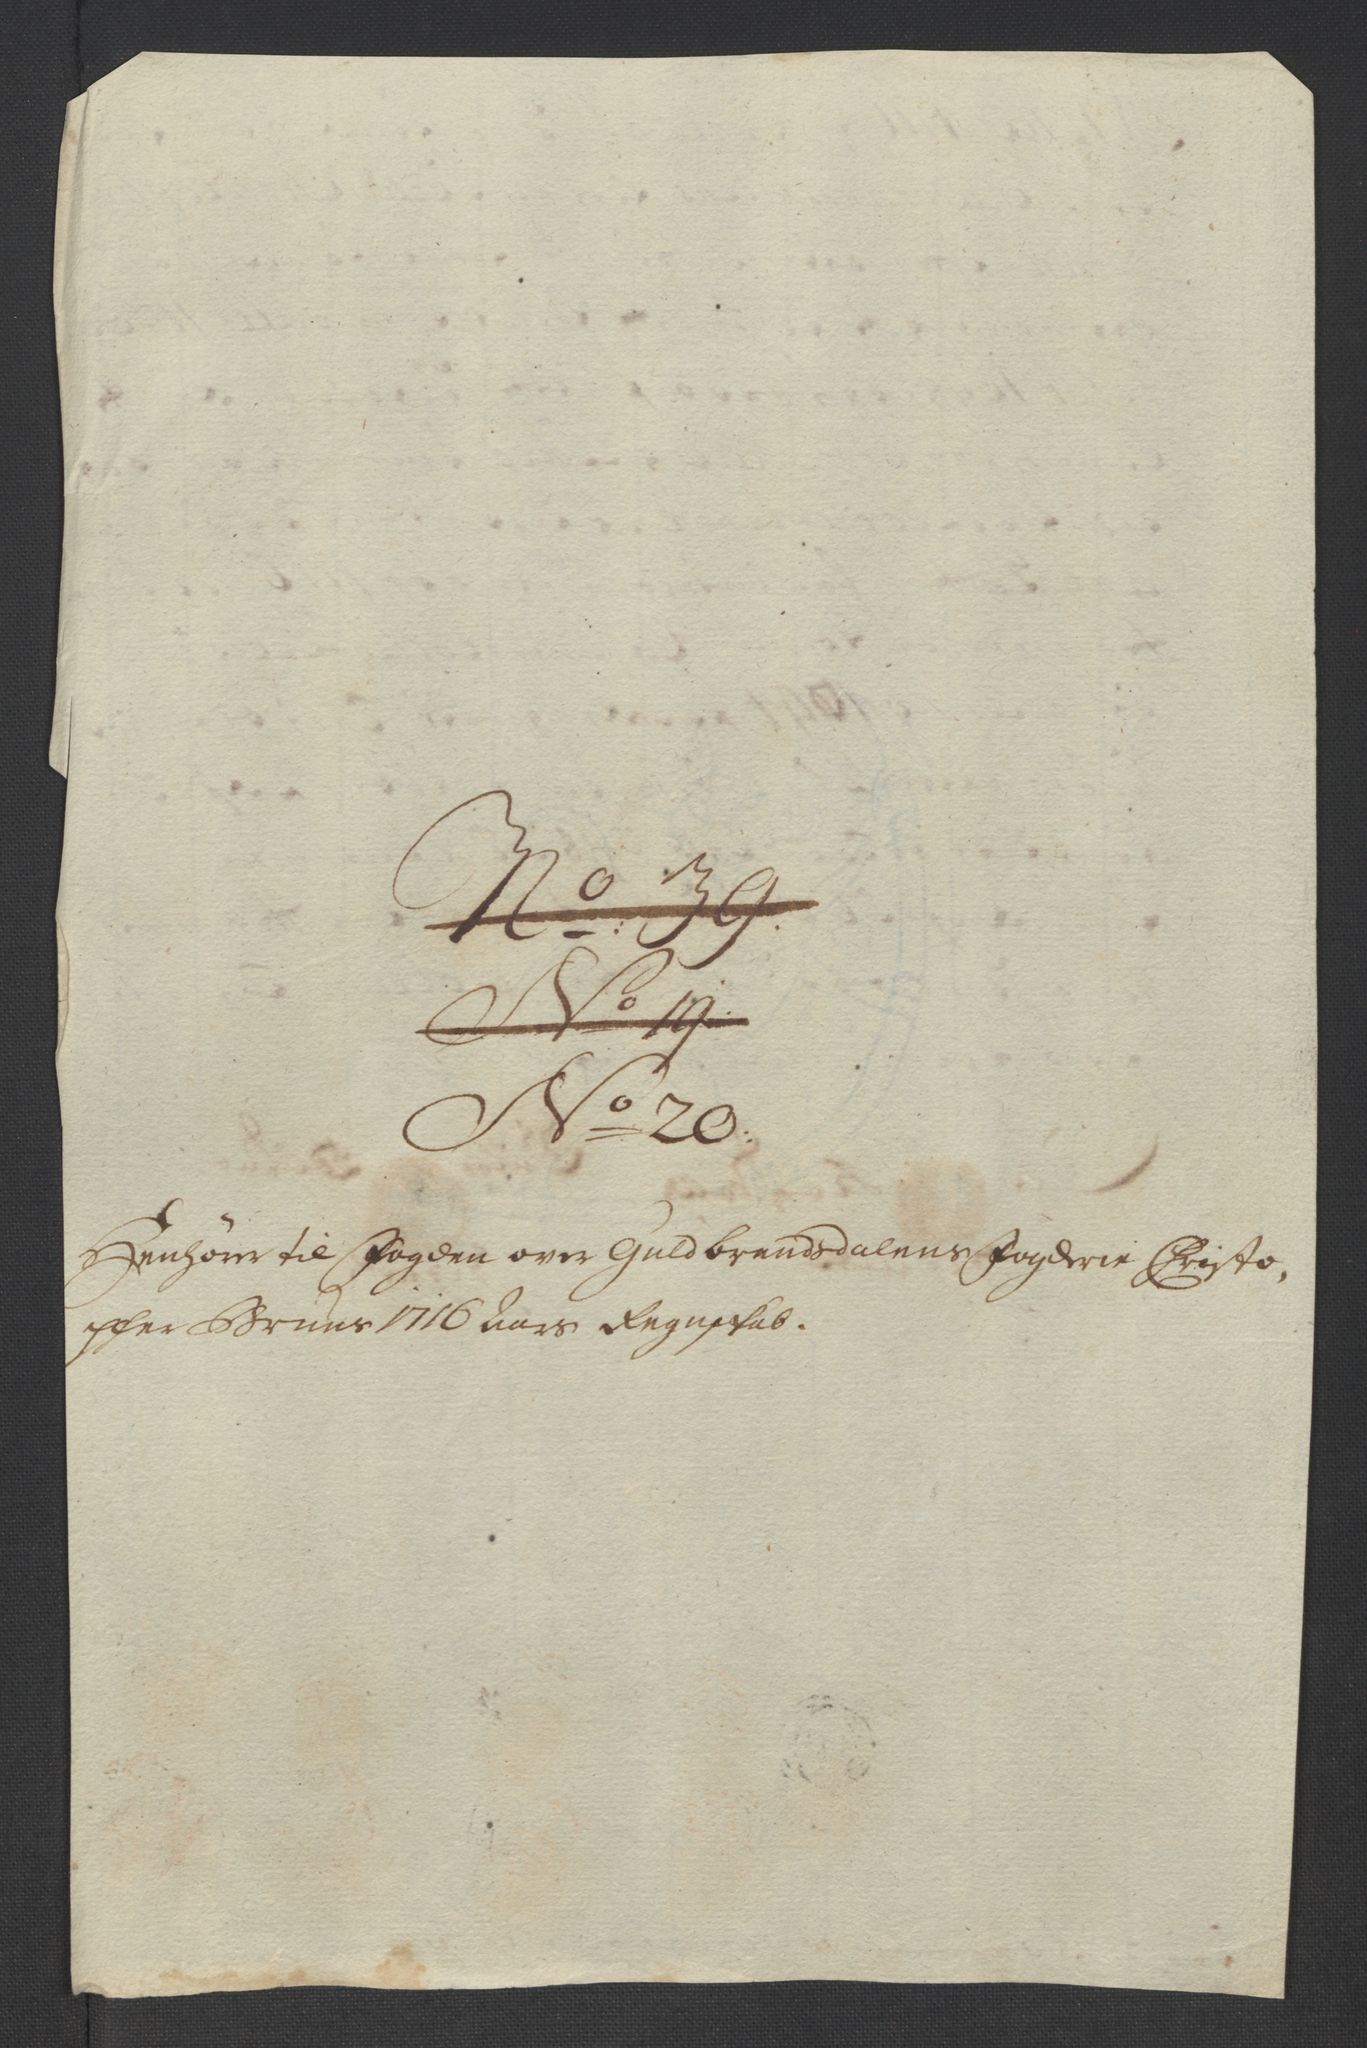 No: 39.
No 19.
No 20.
Henhører til Fogden over Guldbrandsdalens Fogderie Christo,
pher Bruuns 1716 Aars Regnskab.